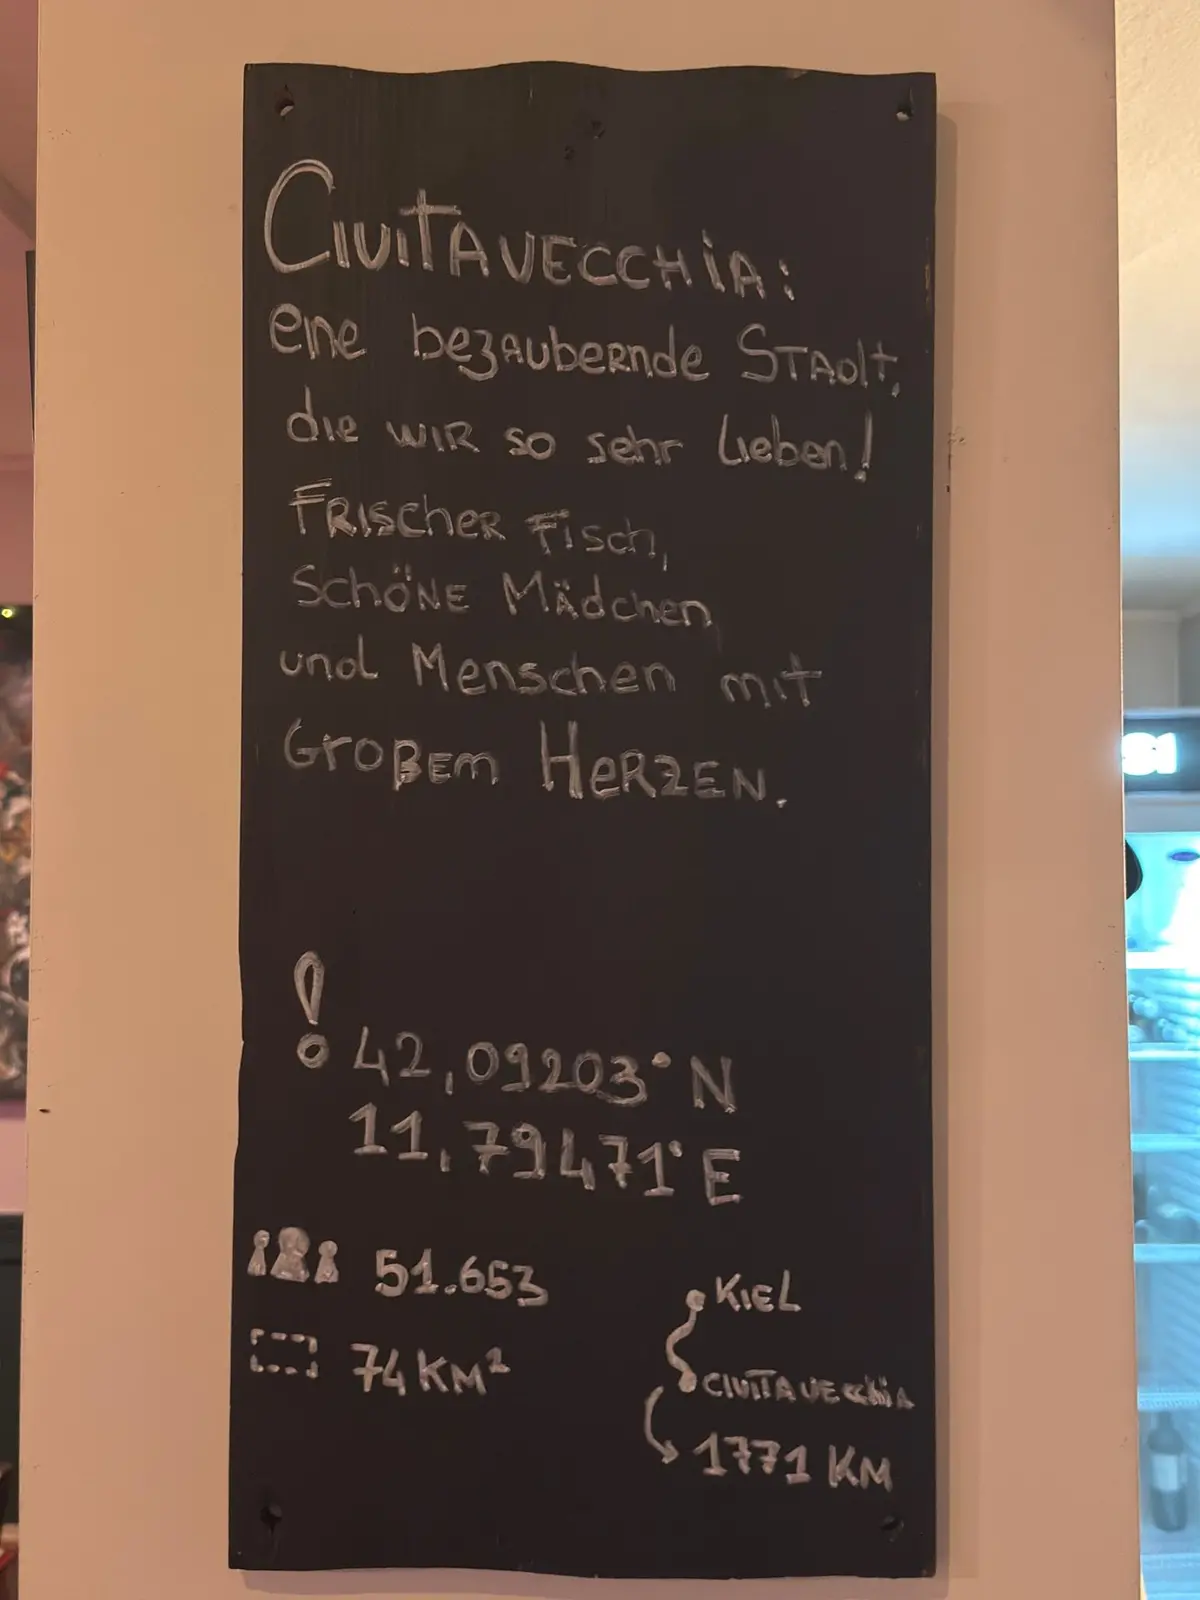 CIVITAVECCHIA:
eine bezaubernde STADT,
die WIR so sehr lieben!
FRischeR Fisch,
SchöNE Mädchen,
und Menschen mit
GroßEm HeRZEN.
! 42,09203° N
11,79471° E
51.653
74 KM²
KIEL
CIVITAVEcchiA
1771 KM